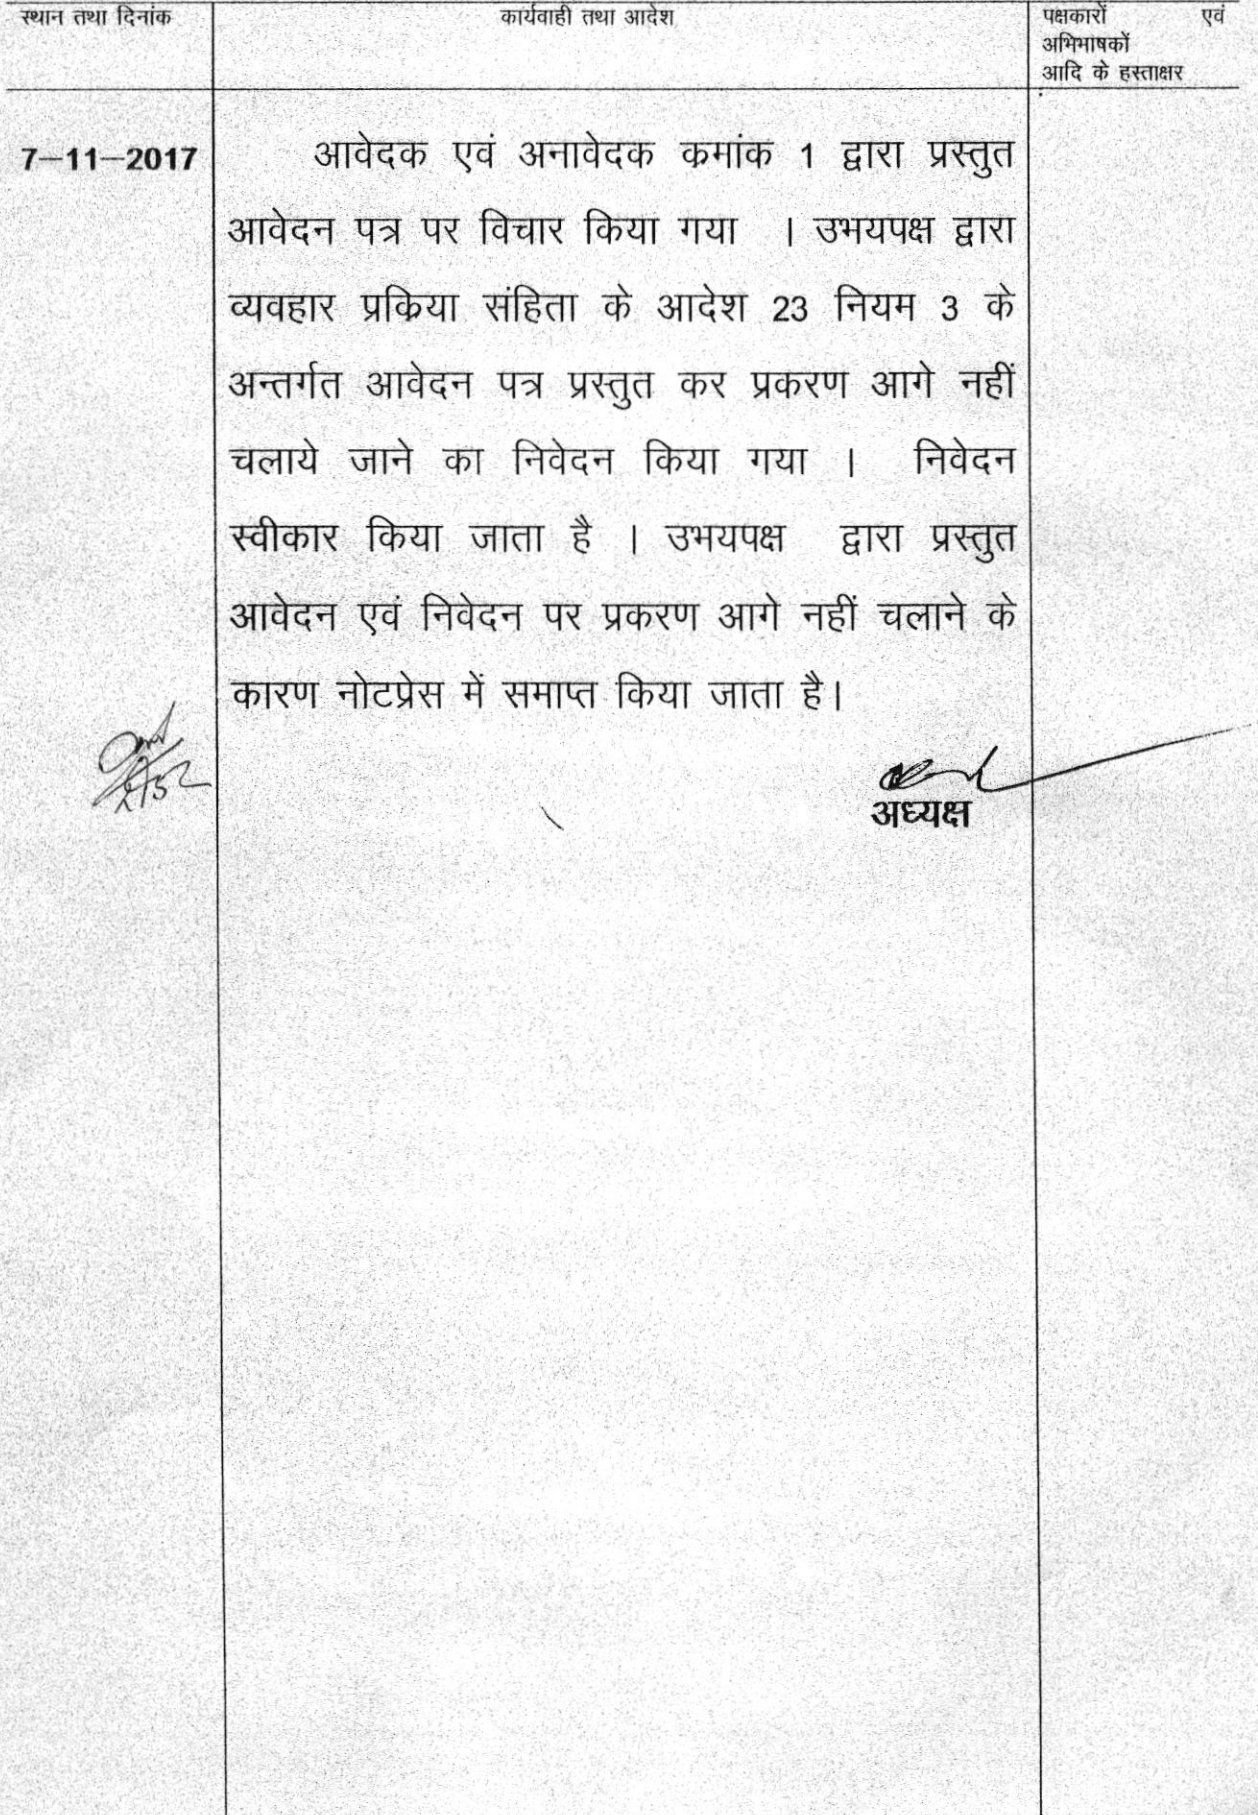 स्थान तथा दिनांक
कार्यवाही तथा आदेश
पक्षकारों एवं
अभिभाषकों
आदि के हस्ताक्षर
7–11–2017
आवेदक एवं अनावेदक कमांक 1 द्वारा प्रस्तुत
आवेदन पत्र पर विचार किया गया । उभयपक्ष द्वारा
व्यवहार प्रकिया संहिता के आदेश 23 नियम 3 के
अन्तर्गत आवेदन पत्र प्रस्तुत कर प्रकरण आगे नहीं
चलाये जाने का निवेदन किया गया । निवेदन
स्वीकार किया जाता है । उभयपक्ष द्वारा प्रस्तुत
आवेदन एवं निवेदन पर प्रकरण आगे नहीं चलाने के
कारण नोटप्रेस में समाप्त किया जाता है।
अध्यक्ष